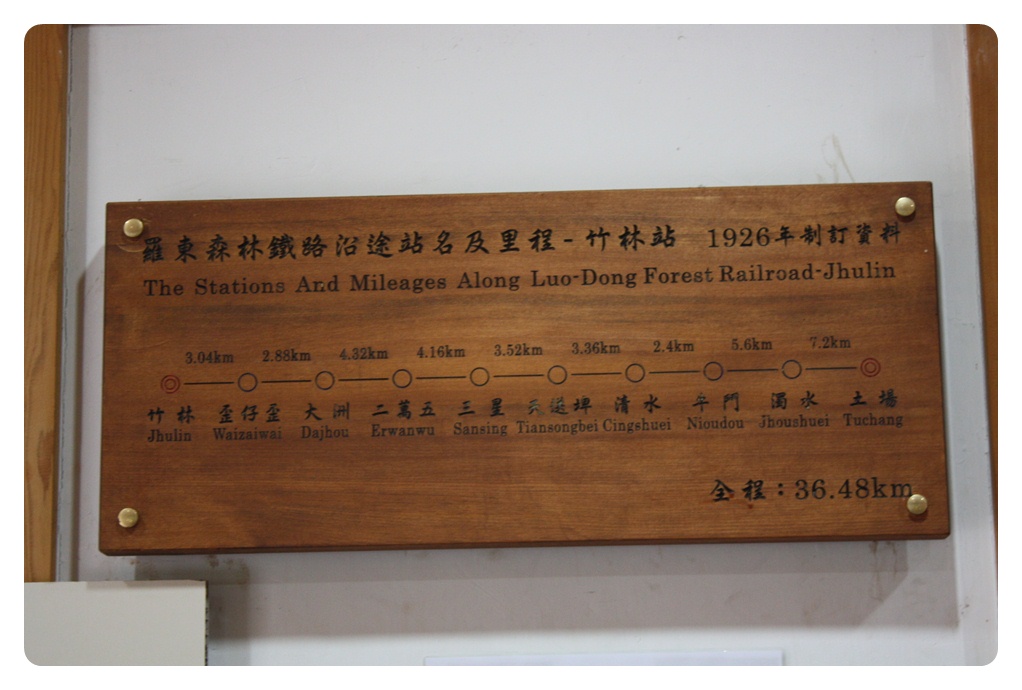 羅東森林鐵路沿途站名及里程-竹林站 1926年制訂資料
The Stations And Mileages Along Luo-Dong Forest Railroad-Jhulin
3.04km 2.88km 4.32km 4.16km 3.52km 3.36km 2.4km 5.6km 7.2km
竹林 歪仔歪 大洲 二萬五 三星 天送埤 清水 牛鬥 濁水 土場
Jhulin Waizaiwai Dajhou Erwanwu Sansing Tiansongbei Cingshuei Nioudou Jhoushuei Tuchang
全程：36.48km